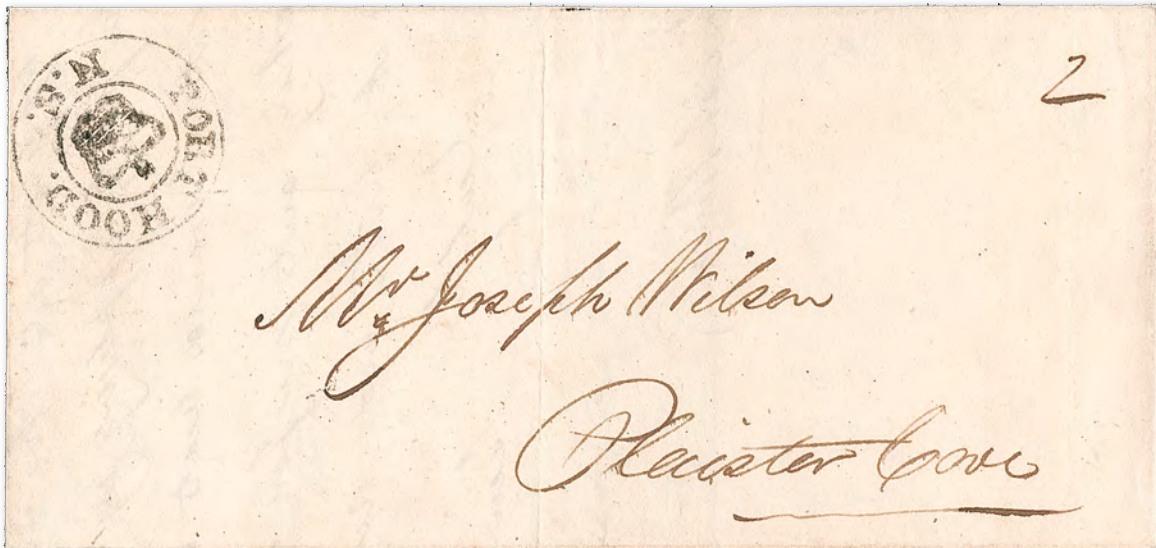 PORT HOOD. N.S.
2
Mr Joseph Wilson
Plaister Cove